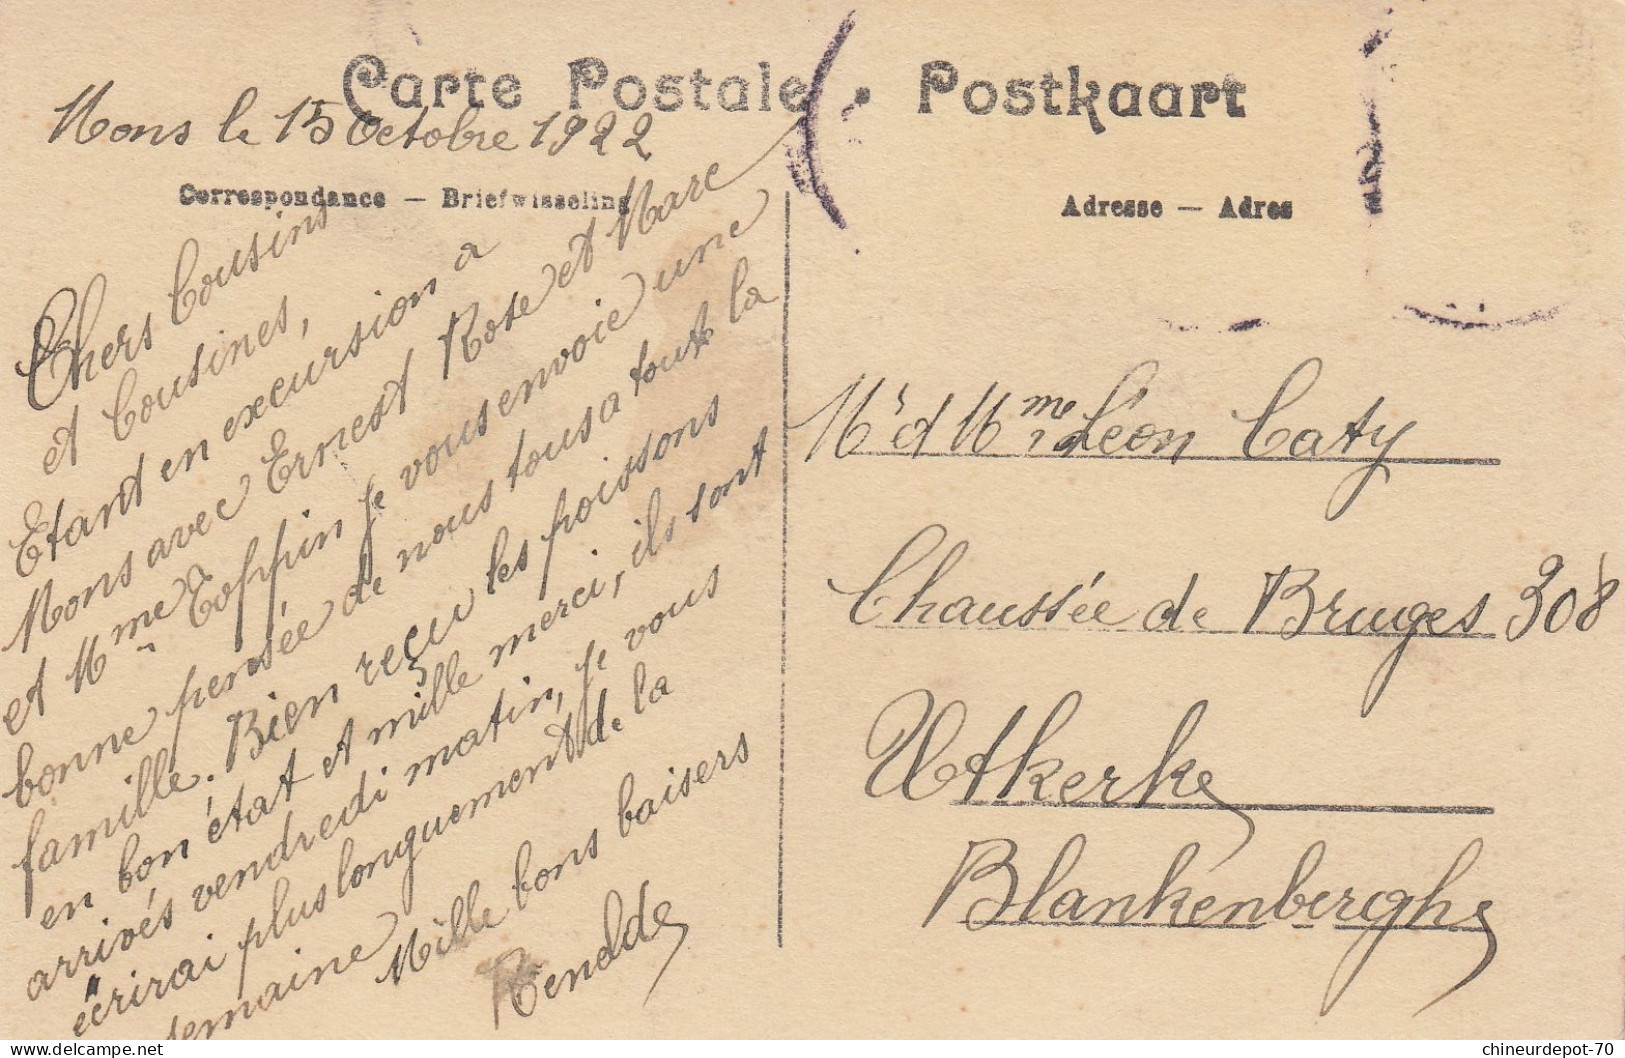 Carte Postale • Postkaart
Mons le 15 Octobre 1922
Correspondance — Briefwisseling
Adresse — Adres
Chers Cousins
et Cousines,
Etant en excursion a
Mons avec Ernest Rose et Marc
et Mme Toffin je vous envoie une
bonne pensée de nous tous a toute la
famille. Bien reçu les poissons
en bon état et mille merci, ils sont
arrivés vendredi matin, je vous
écrirai plus longuement de la
semaine
Mille bons baisers
Mr et Mme Léon Caty
Chaussée de Bruges 308
Utkerke
Blankenberghe
chineurdepot-70